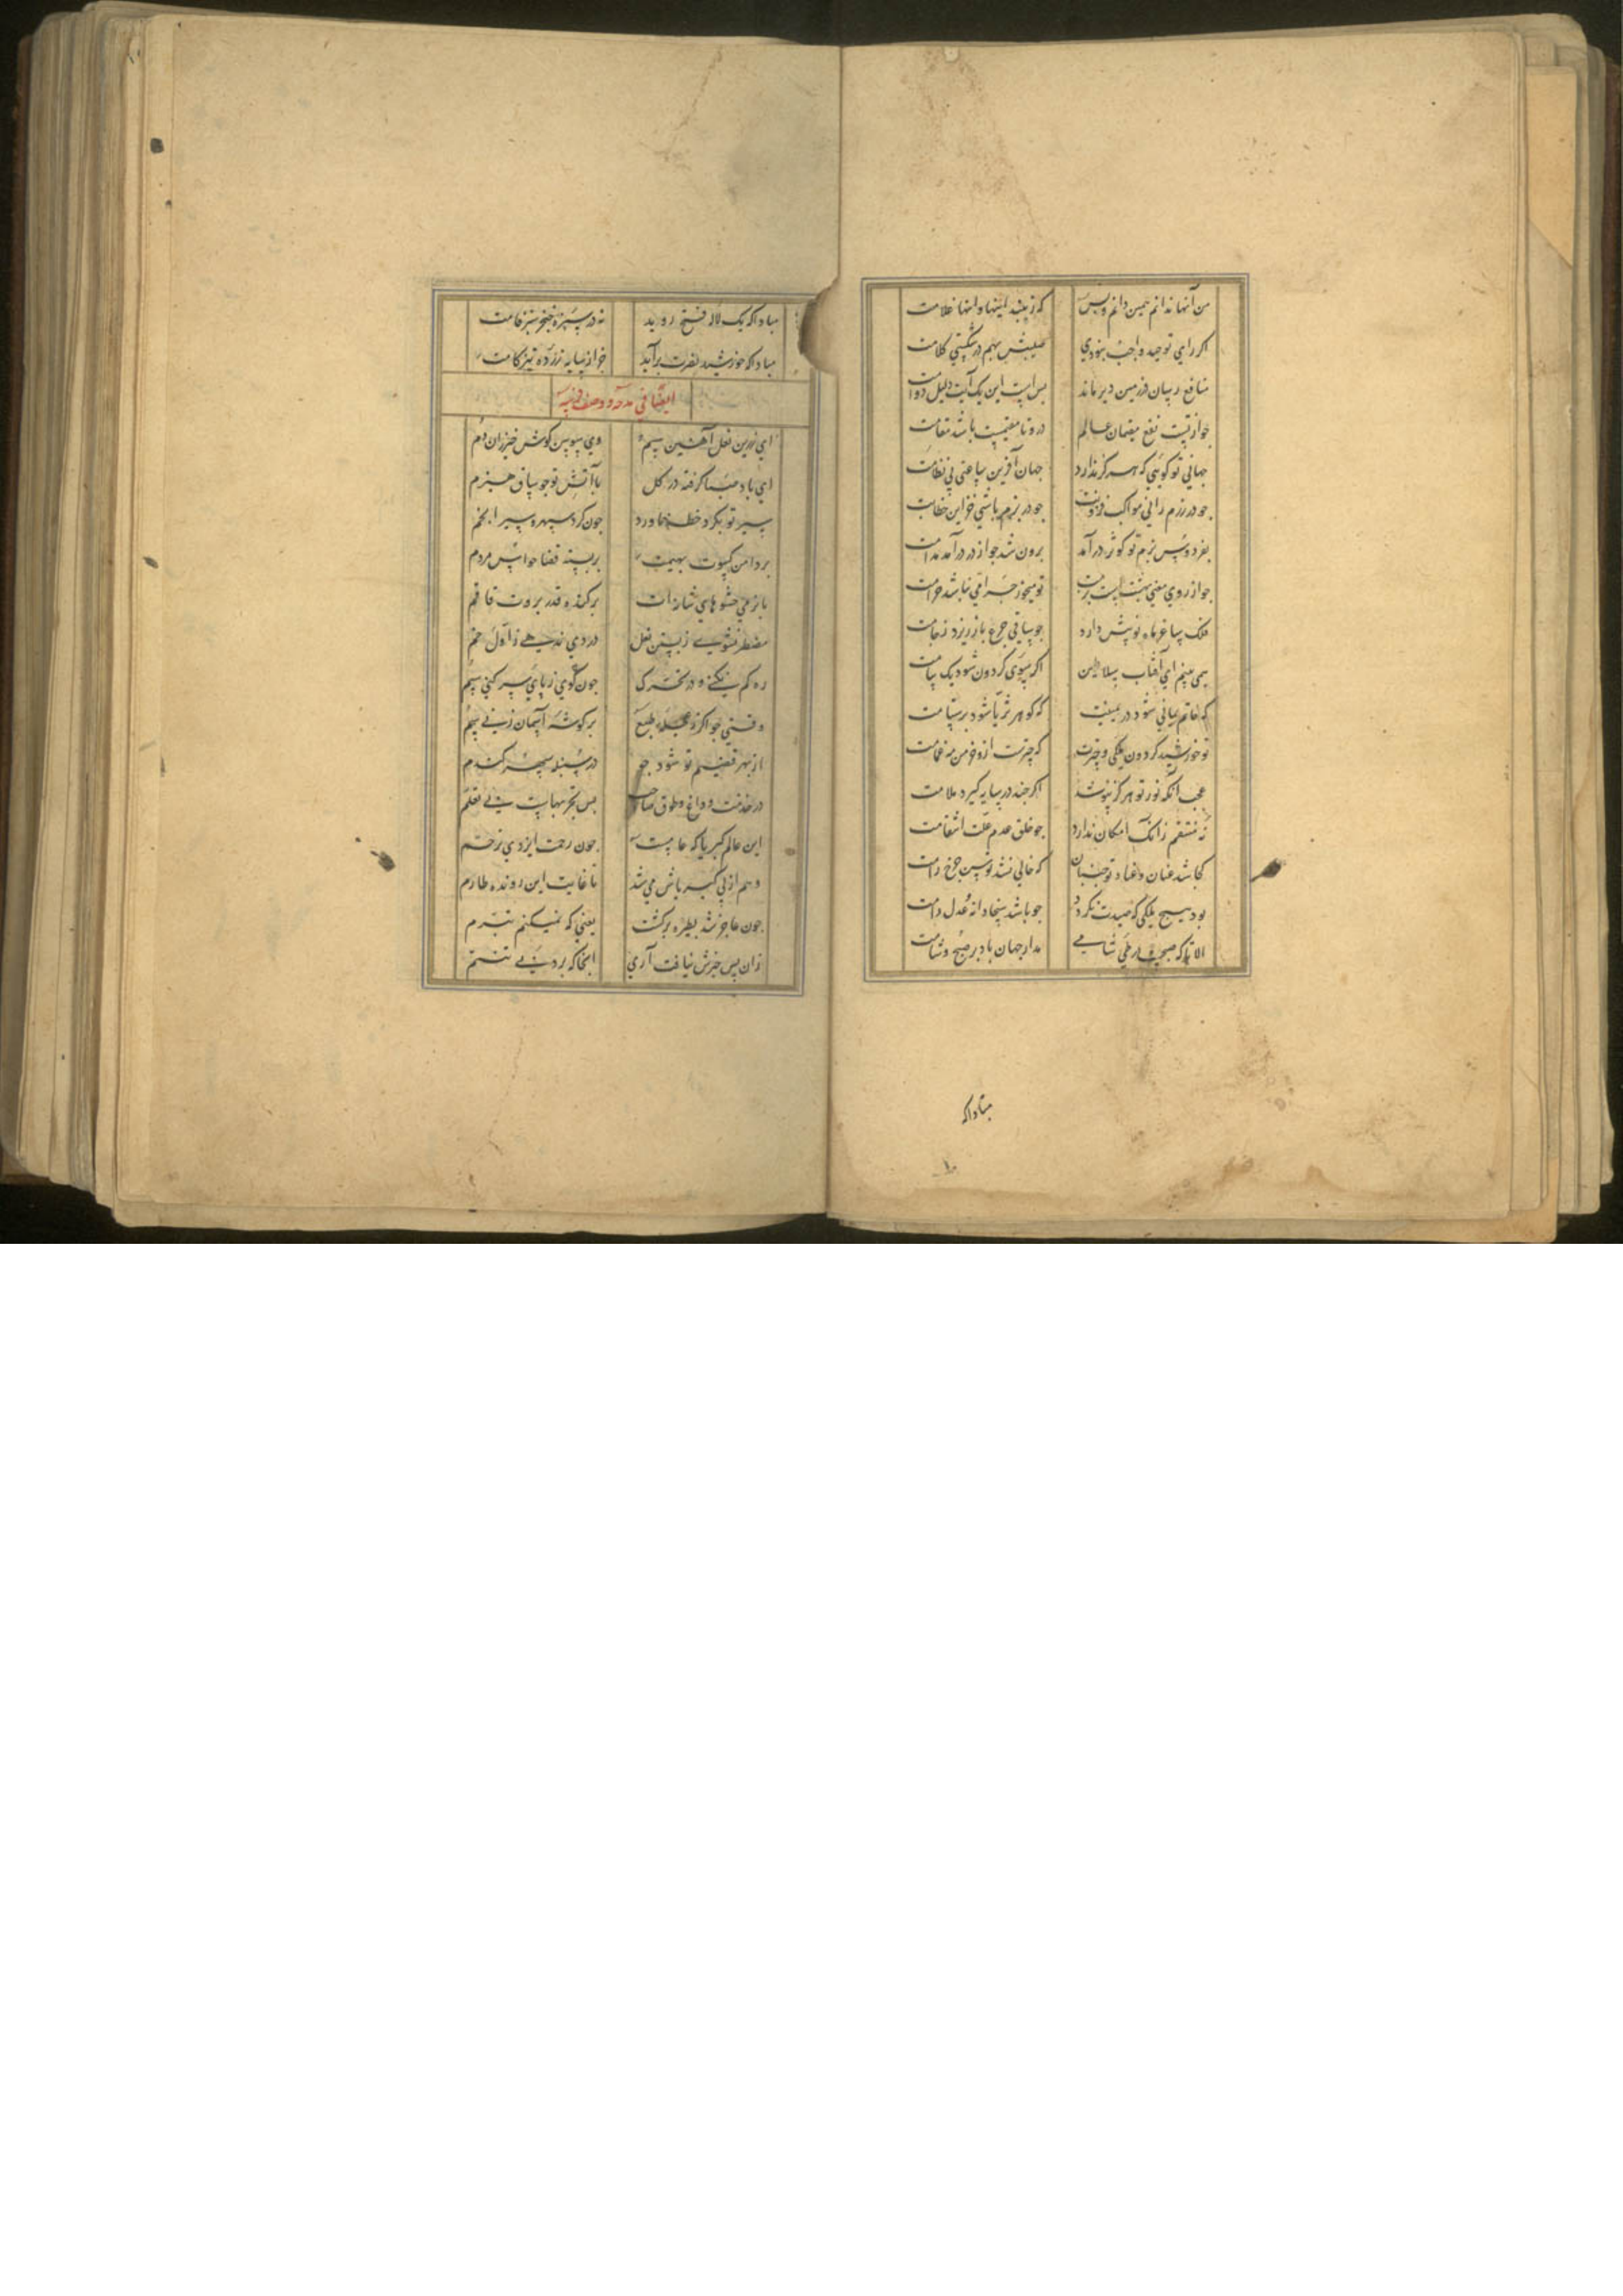 من آنها ندانم همین دانم و بس که زیبند اینها و انها غلامت
اگر رای توحید واجب نبودی
منافع رسان در زمین دیر ماند بس است این یک آیت دلیل دوامت
جو ازتست نفع مقیمان عالم درو تا مقیمیست باشد مقامت
جهانی تو کویی که هرگز ندارد جهان آفرین ساعتی بی نظامت
جو در رزم رانی مواکب جو در بزم باشی خزاین
بفردوس بزم تو کوثر درآمد برون شد جو از در درآمد مدامت
جو از روی معنی بهشتست بزمت تو میخور جرا می نباشد حرامت
فلک ساغر ماه نو پیش دارد جو ساقی جرعه بازریزد ز جامت
همی بینم ای آفتاب سلاطین اگر سوی گردون شود یک پیامت
که خاتم یمانی شود در یمینت که گوهر ثریا شود بر ستامت
تو خورشید گردون ملکی و چترت که چترت ازو خرمن مه غمامت
عجب آنکه نور تو هرگز نپوشد اگر چند در سایه گیرد علامت
نه منتقم زانک امکان ندارد جو خلق عدم علت انتقامت
کجا شد عنان و عناد تو جنبان که خالی نشد توسن جرخ رامت
بود هیچ ملکی که صیدت نکردد جو باشد سخا دانه و عدل دامت
الا تا که صبحیست در طی شامی مدار جهان باد بر صبح و شامت
مباداکه
۱۰
مباداکه یک لاله فتح روید نه در سبزه خنجر سبز فامت
مباداکه خورشید نصرت برآید جز از سایه زرده تیزکامت
ایضا فی مدحه و وصف فرسه
ای زرین نعل آهنین سم وی سوسن گوش خیزران دم
ای باد صبا گرفته در گل با آتش تو جو ساق هیزم
سیر تو بگرد خطه ناورد جون گرد سپهر و سیر انجم
بر دامن کسوت بهیمیت بر بسته قضا حواس مردم
با نرمی حشوهای شانه ات برکنده قدر بروت قاقم
مضطر نشوی ز بستن نعل در دی ندهی ز اول خم
ره گم نکنی و در تحرک جون گوی ز پای سر کنی گم
وقتی جو اگر ز بهر طبع بر گوشه آسمان زنی سم
از بهر قضیم تو شود جو در سنبله سپهر گندم
در خدمت داغ و طوق صاحب بس تجربهاست بی تعلم
این عالم کبریا که عامست جون رحمت ایزدی ترحم
وهم از پی کبریاش می شد تا غایت این رونده طارم
جون عاجز شد بطیره برگشت یعنی که نمیکنم تبرم
زان پس خبرش نیافت آری انجاکه برد پی تنسم